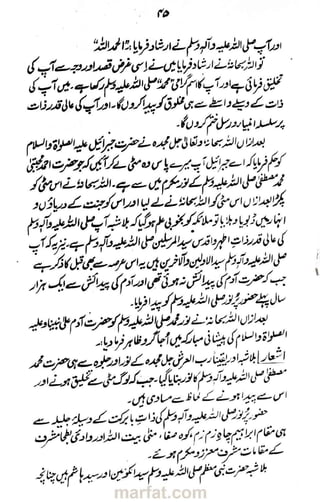 ۴۵
اور آپ صلی اللہ علیہ وآلہ وسلم نے ارشاد فرمایا "انا محمد اللہ"
تو اللہ سبحانہ نے ارشاد فرمایا میں نے اسی غرض قصد اور وجہ سے آپ کی
تخلیق فرمائی ہے اور آپ کا اسم گرامی محمد صلی اللہ علیہ وسلم رکھا ہے۔ میں آپ کی
ذات کے وسیلے واسطے سے ہی مخلوق کو پیدا کروں گا۔ اور آپ کی عالی قدر ذات
پر سلسلہ انبیاء و رسل ختم کروں گا۔
بعد ازاں اللہ سبحانہ وتعالیٰ جل مجدہ نے حضرت جبرائیل علیہ الصلوٰۃ والسلام
کو حکم فرمایا کہ اے جبرائیل آپ میرے پاس وہ مٹی لے کر آئیں کہ جو حضرت احمد مجتبیٰ
محمد مصطفیٰ صلی اللہ علیہ وسلم کے نور مکرم میں سے ہے۔ اللہ سبحانہ نے اس مٹی کو
پکڑا بعد ازاں اس مٹی کو اللہ سبحانہ نے لے لیا اور اس کو جنت کے دریاؤں و
انہار میں ڈبویا و ہلایا تو ملائکہ کو بخوبی علم ہو گیا کہ بلاشبہ آپ صلی اللہ علیہ وآلہ وسلم
کی عالی قدر ذات اطہر و اقدس سید المرسلین صلی اللہ علیہ وآلہ وسلم ہے۔ نیز یہ کہ آپ
صلی اللہ علیہ وآلہ وسلم سید الاولین والآخرین ہیں یہ اس عرصہ سے بھی قبل کا ذکر ہے
جب کہ حضرت آدم کی پیدائش نہ ہوئی تھی اور آدم کی پیدائش سے ایک ہزار
سال پہلے حضور پُر نور صلی اللہ علیہ وسلم کو پیدا فرمایا۔
بعد ازاں اللہ سبحانہ نے نور محمد صلی اللہ علیہ وسلم کو حضرت آدم علی نبینا و علیہ
الصلوٰۃ والسلام کی پیشانی مبارکہ میں اجاگر و ظاہر فرما دیا۔
اشعار بلاشبہ اور یقیناً رب العرش جل مجدہ کے نور اور جلوہ سے ہی حضرت محمد
مصطفیٰ صلی اللہ علیہ وآلہ وسلم کا نور بنایا گیا۔ جب کہ لوگ مٹی سے تخلیق ہوئے اور
اس سے پیدا ہونے کے لحاظ سے مساوی ہیں۔
حضور پُر نور صلی اللہ علیہ وآلہ وسلم کی ذات بابرکت کے وسیلہ جلیلہ سے
ہی مقام ابراہیم چاہ زم زم، کوہ صفا، منیٰ بیت اللہ اور وادئ بطحیٰ مشرف
کے مقامات مشرف معزز و مکرم ہوئے۔
بلاشبہ حضرت نبی معظم صلی اللہ علیہ وسلم سید الکونین اور سید ہاشم ہیں چنانچہ
marfat.com